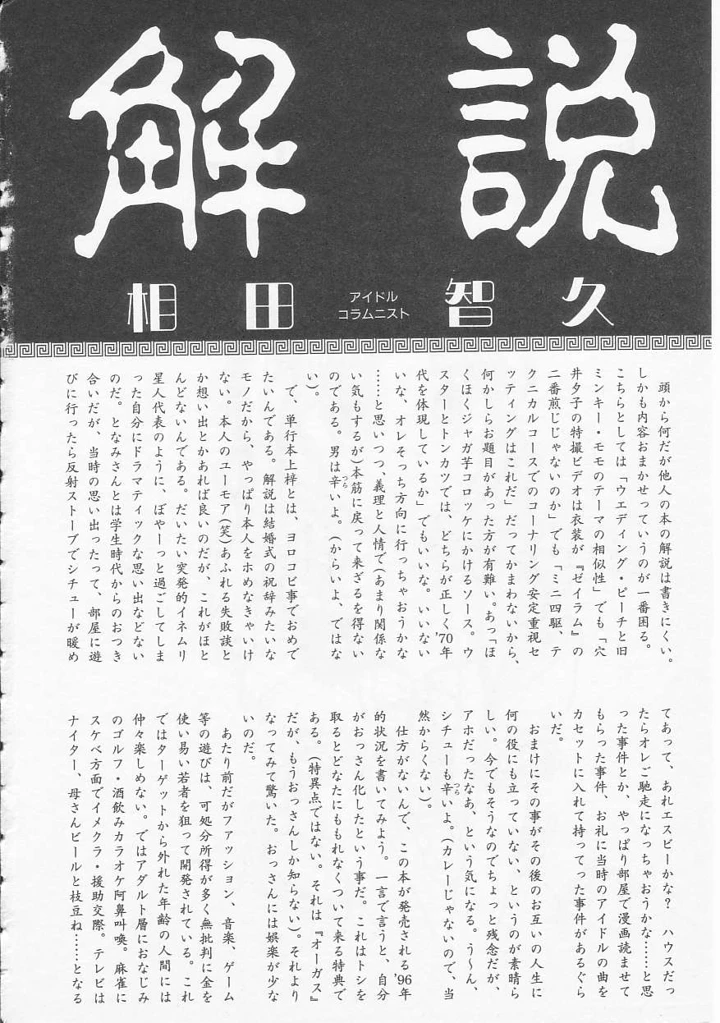 解説
相田智久
アイドル
コラムニスト
頭から何だが他人の本の解説は書きにくい。
しかも内容おまかせっていうのが一番困る。
こちらとしては「ウエディング・ピーチと旧
ミンキー・モモのテーマの相似性」でも「穴
井夕子の特撮ビデオは衣装が『ゼイラム』の
二番煎じじゃないのか」でも「ミニ四駆 テ
クニカルコースでのコーナリング安定重視セ
ッティングはこれだ」だってかまわないから、
何かしらお題目があった方が有難い。あっ「ほ
くほくジャガ芋コロッケにかけるソース。ウ
スターとトンカツでは、どちらが正しく'70年
代を体現しているか」でもいいな。いいない
いな、オレそっち方向に行っちゃおうかな
……と思いつつ、義理と人情で(あまり関係な
い気もするが)本筋に戻って来ざるを得ない
のである。男は辛いよ。(からいよ、ではな
い)。
で、単行本上梓とは、ヨロコビ事でおめで
たいんである。解説は結婚式の祝辞みたいな
モノだから、やっぱり本人をホめなきゃいけ
ない。本人のユーモア(笑)あふれる失敗談と
か想い出とかあれば良いのだが、これがほと
んどないんである。だいたい突発的イネムリ
星人代表のように、ぼやーっと過ごしてしま
った自分にドラマティックな思い出などない
のだ。となみさんとは学生時代からのおつき
合いだが、当時の思い出ったって、部屋に遊
びに行ったら反射ストーブでシチューが暖め
てあって、あれエスビーかな? ハウスだっ
たらオレご馳走になっちゃおうかな……と思
った事件とか、やっぱり部屋で漫画読ませて
もらった事件、お礼に当時のアイドルの曲を
カセットに入れて持ってった事件があるぐら
いだ。
おまけにその事がその後のお互いの人生に
何の役にも立っていない、というのが素晴ら
しい。今でもそうなのでちょっと残念だが、
アホだったなあ、という気になる。う〜ん、
シチューも辛いよ。(カレーじゃないので、当
然からくない)。
仕方がないんで、この本が発売される'96年
的状況を書いてみよう。一言で言うと、自分
がおっさん化したという事だ。これはトシを
取るとどなたにももれなくついて来る特典で
ある。(特異点ではない。それは『オーガス』
だが、もうおっさんしか知らない)。それより
なってみて驚いた。おっさんには娯楽が少な
いのだ。
あたり前だがファッション、音楽、ゲーム
等の遊びは、可処分所得が多く無批判に金を
使い易い若者を狙って開発されている。これ
ではターゲットから外れた年齢の人間には
仲々楽しめない。ではアダルト層におなじみ
のゴルフ・酒飲みカラオケ阿鼻叫喚。麻雀に
スケベ方面でイメクラ・援助交際。テレビは
ナイター、母さんビールと枝豆ね……となる